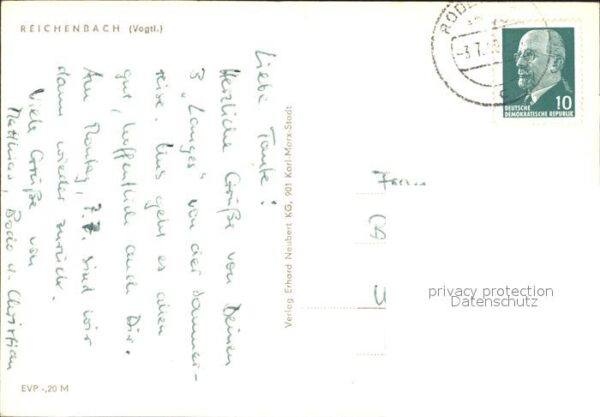 REICHENBACH (Vogtl.)
Liebe Tante!
Herzliche Grüße von Deinen
3 "Langes" von der Sommer-
reise. Uns geht es allen
gut, hoffentlich auch Dir.
Am Montag, 7.7. sind wir
dann wieder zurück.
Viele Grüße von
Matthias, Bodo u. Christian
EVP -,20 M
Verlag Erhard Neubert KG, 901 Karl-Marx-Stadt
-3.7.
10
DEUTSCHE
DEMOKRATISCHE REPUBLIK
privacy protection
Datenschutz